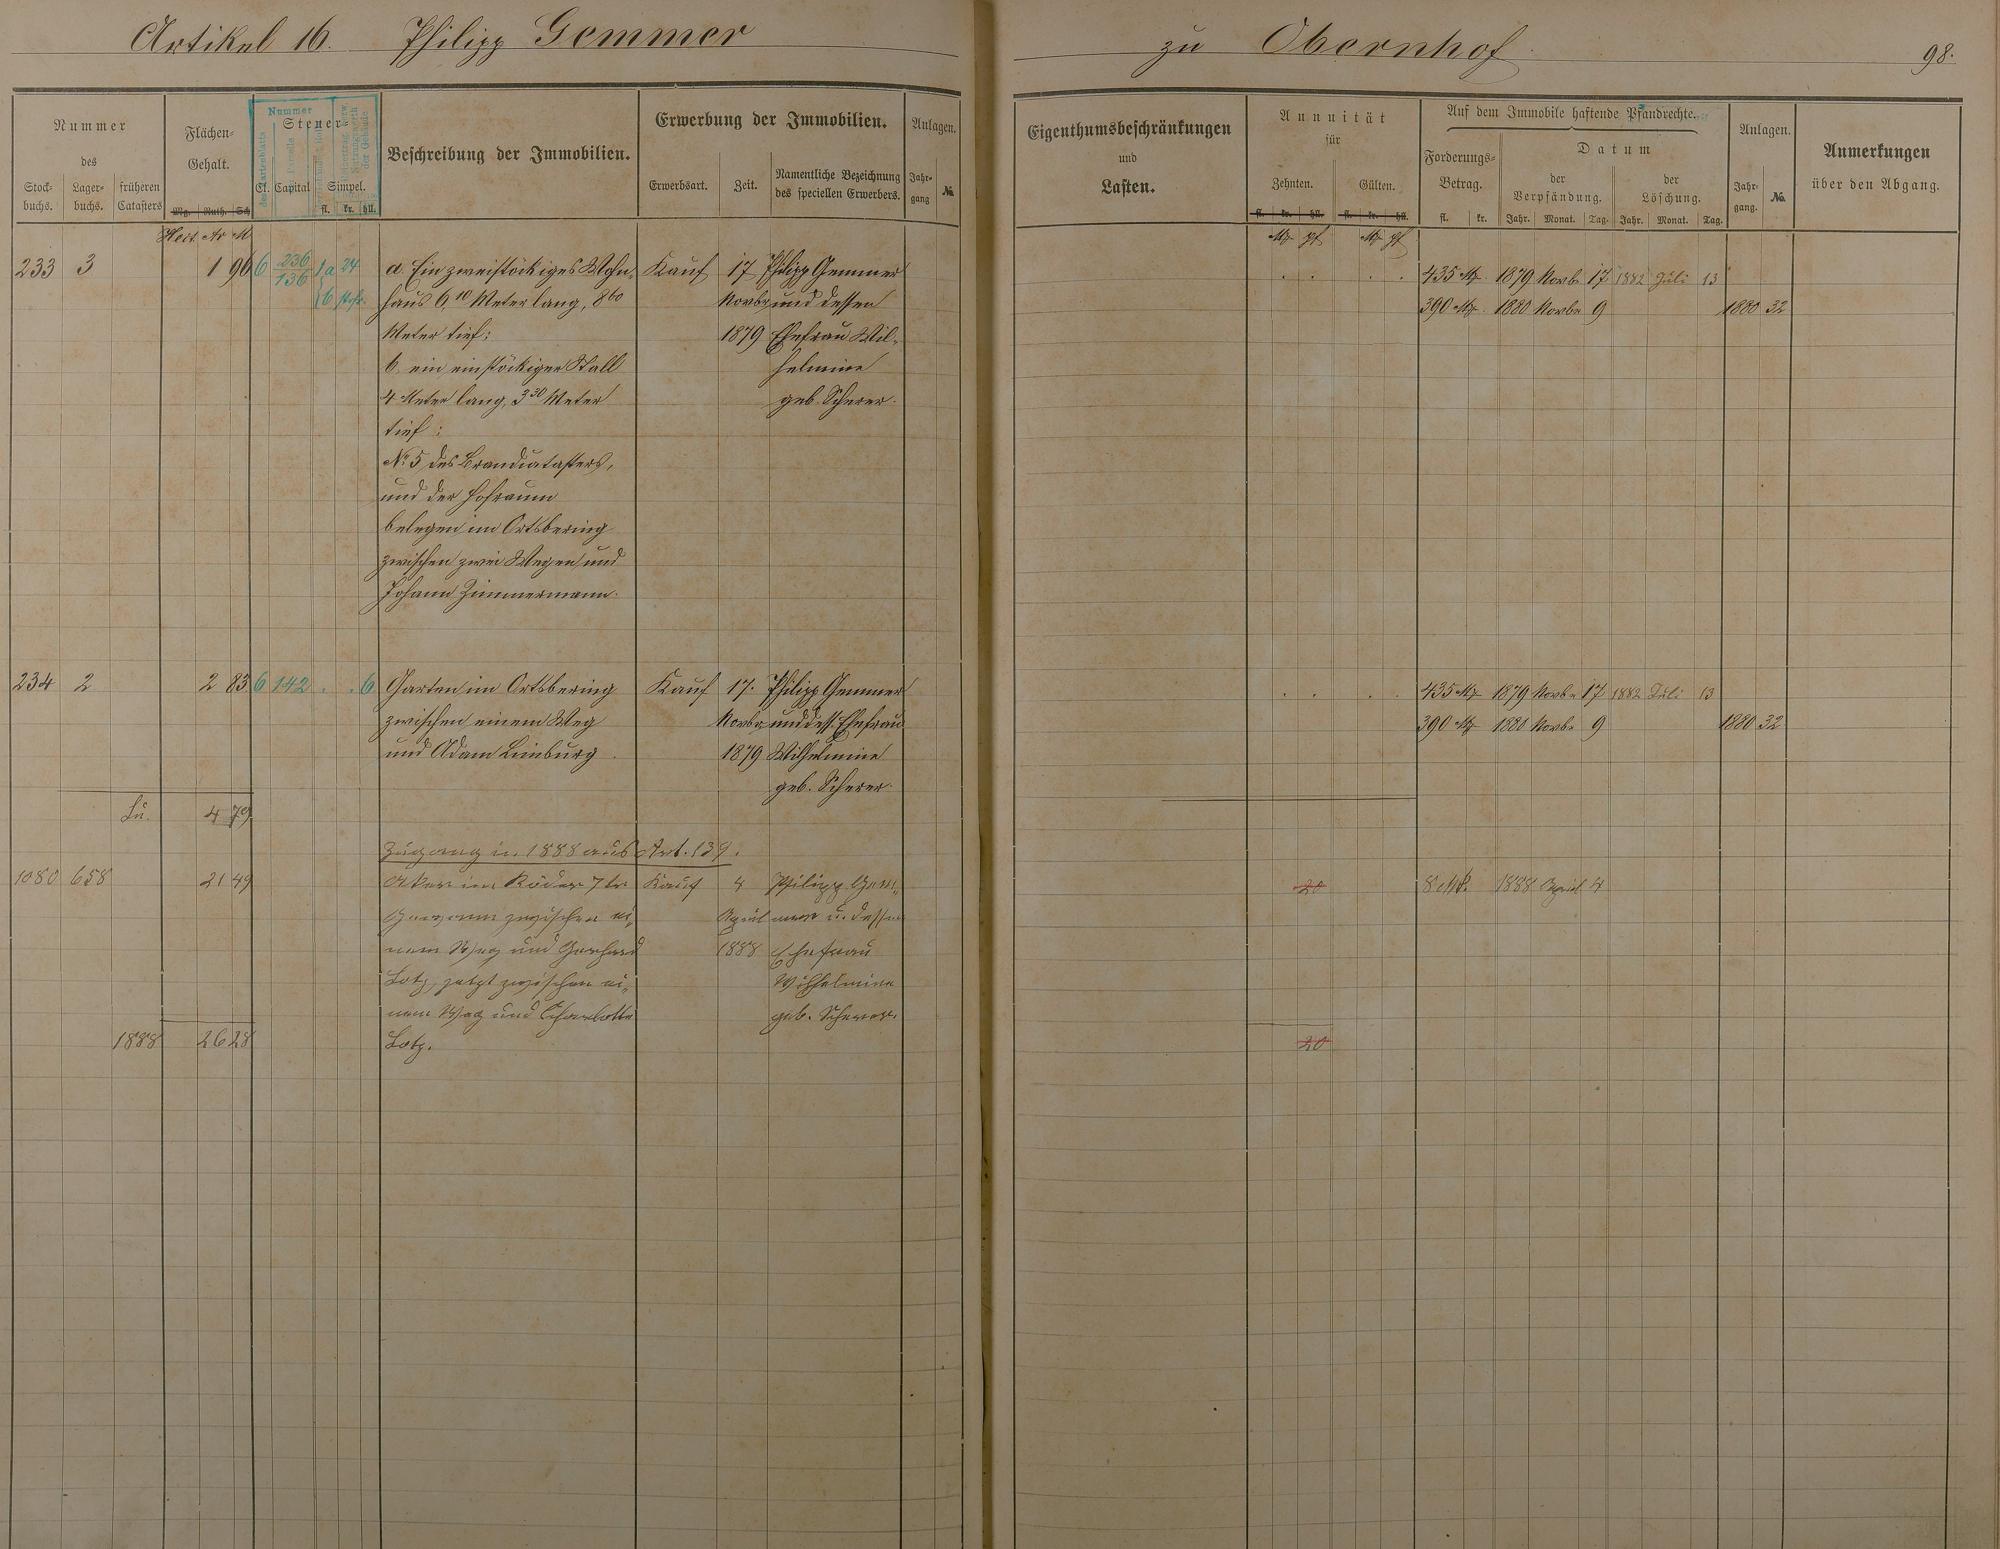 Artikel 16. Philipp Gemmer zu Obernhof. 98.
Nummer
des
Stock-buchs. Lager-buchs. früheren Catasters
Flächen-Gehalt.
Mg. Ruth. Sch
Nummer
Steuer-
Cl. Capital Simpel.
fl. kr. hll.
Beschreibung der Immobilien.
Erwerbung der Immobilien.
Erwerbsart. Zeit. Namentliche Bezeichnung des speciellen Erwerbers.
Anlagen.
Jahr-gang No.
Eigenthumsbeschränkungen
und
Lasten.
Annuität
für
Zehnten. Gülten.
fl. kr. hll. fl. kr. hll.
Auf dem Immobile haftende Pfandrechte.
Forderungs-Betrag. Datum
der Verpfändung. der Löschung.
fl. kr. Jahr. Monat. Tag. Jahr. Monat. Tag.
Anlagen.
Jahr-gang. No.
Anmerkungen
über den Abgang.
Hect. Ar M Mk pf Mk pf
233 3 1 96 6 236 1a 24 a. Ein zweistöckiges Wohn- Kauf 17 Philipp Gemmer 435 Mk 1879 Novbr 17 1882 Juli 13
136 b haus 6,10 Meter lang, 8 60 Novbr und dessen 390 Mk 1880 Novbr 9 1880 32
Meter tief; 1879 Ehefrau Wil-
b. ein einstöckiger Stall helmine
4 Meter lang, 3 30 Meter geb. Scherer.
tief;
No. 5 des Brandcatasters,
und der Hofraum
belegen im Ortsbering
zwischen zwei Wegen und
Johann Zimmermann.
234 2 2 83 6 142 . . 6 Garten im Ortsbering Kauf 17. Philipp Gemmer 435 Mk 1879 Novbr 17 1882 Juli 13
zwischen einem Weg Novbr und dess. Ehefrau 390 Mk 1880 Novbr 9 1880 32
und Adam Linburg. 1879 Wilhelmine
geb. Scherer.
4 79
Zugang in 1888 aus Art. 139.
1080 658 21 49 Acker im Röder 7te Kauf 4 Philipp Gem- 20 8 Mk. 1888 April 4
Gewann zwischen ei- April mer u. dessen
nem Weg und Gerhard 1888 Ehefrau
Lotz, jetzt zwischen ei- Wilhelmine
nem Weg und Charlotte geb. Scherer.
1888 26 28 Lotz. 20